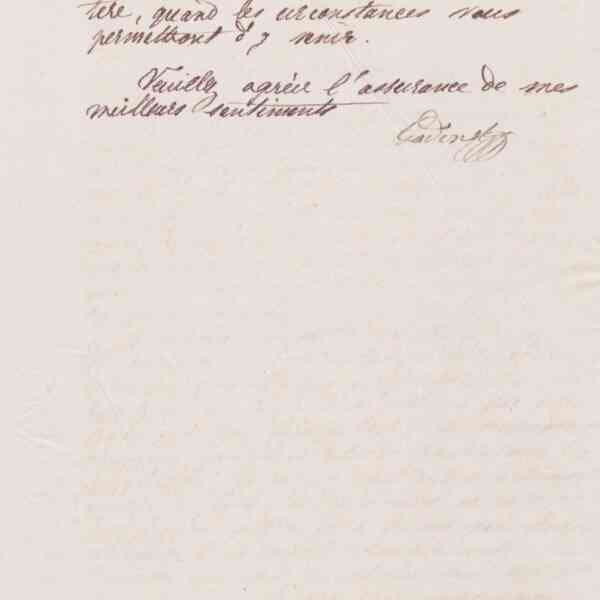 tere, quand les circonstances vous
permettront d'y venir.
Veuillez agréer l'assurance de mes
meilleurs sentiments